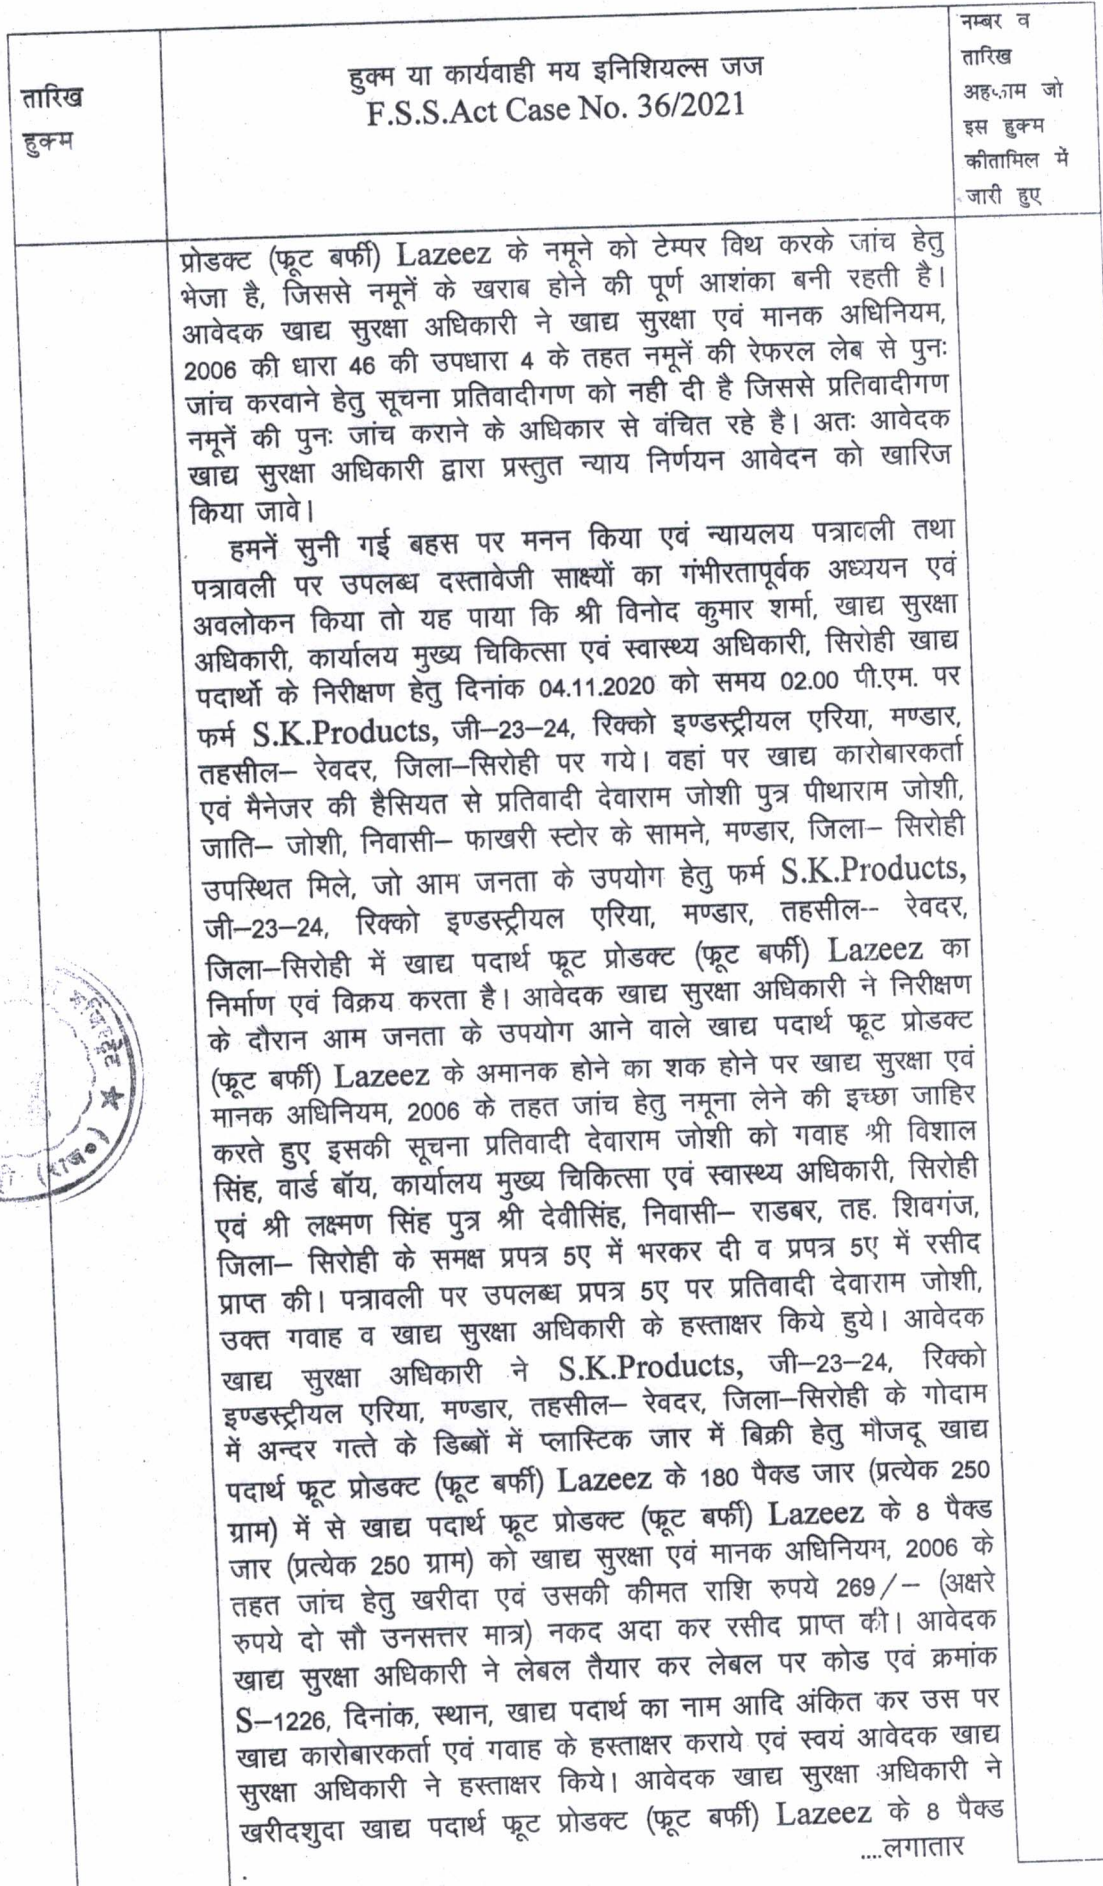 तारिख
हुक्म
हुक्म या कार्यवाही मय इनिशियल्स जज
F.S.S.Act Case No. 36/2021
नम्बर व
तारिख
अहकाम जो
इस हुक्म
कीतामिल में
जारी हुए
प्रोडक्ट (फ्रूट बर्फी) Lazeez के नमूने को टेम्पर विथ करके जांच हेतु
भेजा है, जिससे नमूनें के खराब होने की पूर्ण आशंका बनी रहती है।
आवेदक खाद्य सुरक्षा अधिकारी ने खाद्य सुरक्षा एवं मानक अधिनियम,
2006 की धारा 46 की उपधारा 4 के तहत नमूनें की रेफरल लेब से पुनः
जांच करवाने हेतु सूचना प्रतिवादीगण को नही दी है जिससे प्रतिवादीगण
नमूनें की पुनः जांच कराने के अधिकार से वंचित रहे है। अतः आवेदक
खाद्य सुरक्षा अधिकारी द्वारा प्रस्तुत न्याय निर्णयन आवेदन को खारिज
किया जावे।
हमनें सुनी गई बहस पर मनन किया एवं न्यायलय पत्रावली तथा
पत्रावली पर उपलब्ध दस्तावेजी साक्ष्यों का गंभीरतापूर्वक अध्ययन एवं
अवलोकन किया तो यह पाया कि श्री विनोद कुमार शर्मा, खाद्य सुरक्षा
अधिकारी, कार्यालय मुख्य चिकित्सा एवं स्वास्थ्य अधिकारी, सिरोही खाद्य
पदार्थो के निरीक्षण हेतु दिनांक 04.11.2020 को समय 02.00 पी.एम. पर
फर्म S.K.Products, जी–23–24, रिक्को इण्डस्ट्रीयल एरिया, मण्डार,
तहसील– रेवदर, जिला–सिरोही पर गये। वहां पर खाद्य कारोबारकर्ता
एवं मैनेजर की हैसियत से प्रतिवादी देवाराम जोशी पुत्र पीथाराम जोशी,
जाति– जोशी, निवासी– फाखरी स्टोर के सामने, मण्डार, जिला– सिरोही
उपस्थित मिले, जो आम जनता के उपयोग हेतु फर्म S.K.Products,
जी–23–24, रिक्को इण्डस्ट्रीयल एरिया, मण्डार, तहसील-- रेवदर,
जिला–सिरोही में खाद्य पदार्थ फ्रूट प्रोडक्ट (फ्रूट बर्फी) Lazeez का
निर्माण एवं विक्रय करता है। आवेदक खाद्य सुरक्षा अधिकारी ने निरीक्षण
के दौरान आम जनता के उपयोग आने वाले खाद्य पदार्थ फ्रूट प्रोडक्ट
(फ्रूट बर्फी) Lazeez के अमानक होने का शक होने पर खाद्य सुरक्षा एवं
मानक अधिनियम, 2006 के तहत जांच हेतु नमूना लेने की इच्छा जाहिर
करते हुए इसकी सूचना प्रतिवादी देवाराम जोशी को गवाह श्री विशाल
सिंह, वार्ड बॉय, कार्यालय मुख्य चिकित्सा एवं स्वास्थ्य अधिकारी, सिरोही
एवं श्री लक्ष्मण सिंह पुत्र श्री देवीसिंह, निवासी– राडबर, तह. शिवगंज,
जिला– सिरोही के समक्ष प्रपत्र 5ए में भरकर दी व प्रपत्र 5ए में रसीद
प्राप्त की। पत्रावली पर उपलब्ध प्रपत्र 5ए पर प्रतिवादी देवाराम जोशी,
उक्त गवाह व खाद्य सुरक्षा अधिकारी के हस्ताक्षर किये हुये। आवेदक
खाद्य सुरक्षा अधिकारी ने S.K.Products, जी–23–24, रिक्को
इण्डस्ट्रीयल एरिया, मण्डार, तहसील– रेवदर, जिला–सिरोही के गोदाम
में अन्दर गत्ते के डिब्बों में प्लास्टिक जार में बिक्री हेतु मौजदू खाद्य
पदार्थ फ्रूट प्रोडक्ट (फ्रूट बर्फी) Lazeez के 180 पैक्ड जार (प्रत्येक 250
ग्राम) में से खाद्य पदार्थ फ्रूट प्रोडक्ट (फ्रूट बर्फी) Lazeez के 8 पैक्ड
जार (प्रत्येक 250 ग्राम) को खाद्य सुरक्षा एवं मानक अधिनियम, 2006 के
तहत जांच हेतु खरीदा एवं उसकी कीमत राशि रुपये 269/– (अक्षरे
रुपये दो सौ उनसत्तर मात्र) नकद अदा कर रसीद प्राप्त की। आवेदक
खाद्य सुरक्षा अधिकारी ने लेबल तैयार कर लेबल पर कोड एवं क्रमांक
S–1226, दिनांक, स्थान, खाद्य पदार्थ का नाम आदि अंकित कर उस पर
खाद्य कारोबारकर्ता एवं गवाह के हस्ताक्षर कराये एवं स्वयं आवेदक खाद्य
सुरक्षा अधिकारी ने हस्ताक्षर किये। आवेदक खाद्य सुरक्षा अधिकारी ने
खरीदशुदा खाद्य पदार्थ फ्रूट प्रोडक्ट (फ्रूट बर्फी) Lazeez के 8 पैक्ड
....लगातार
(राज०)